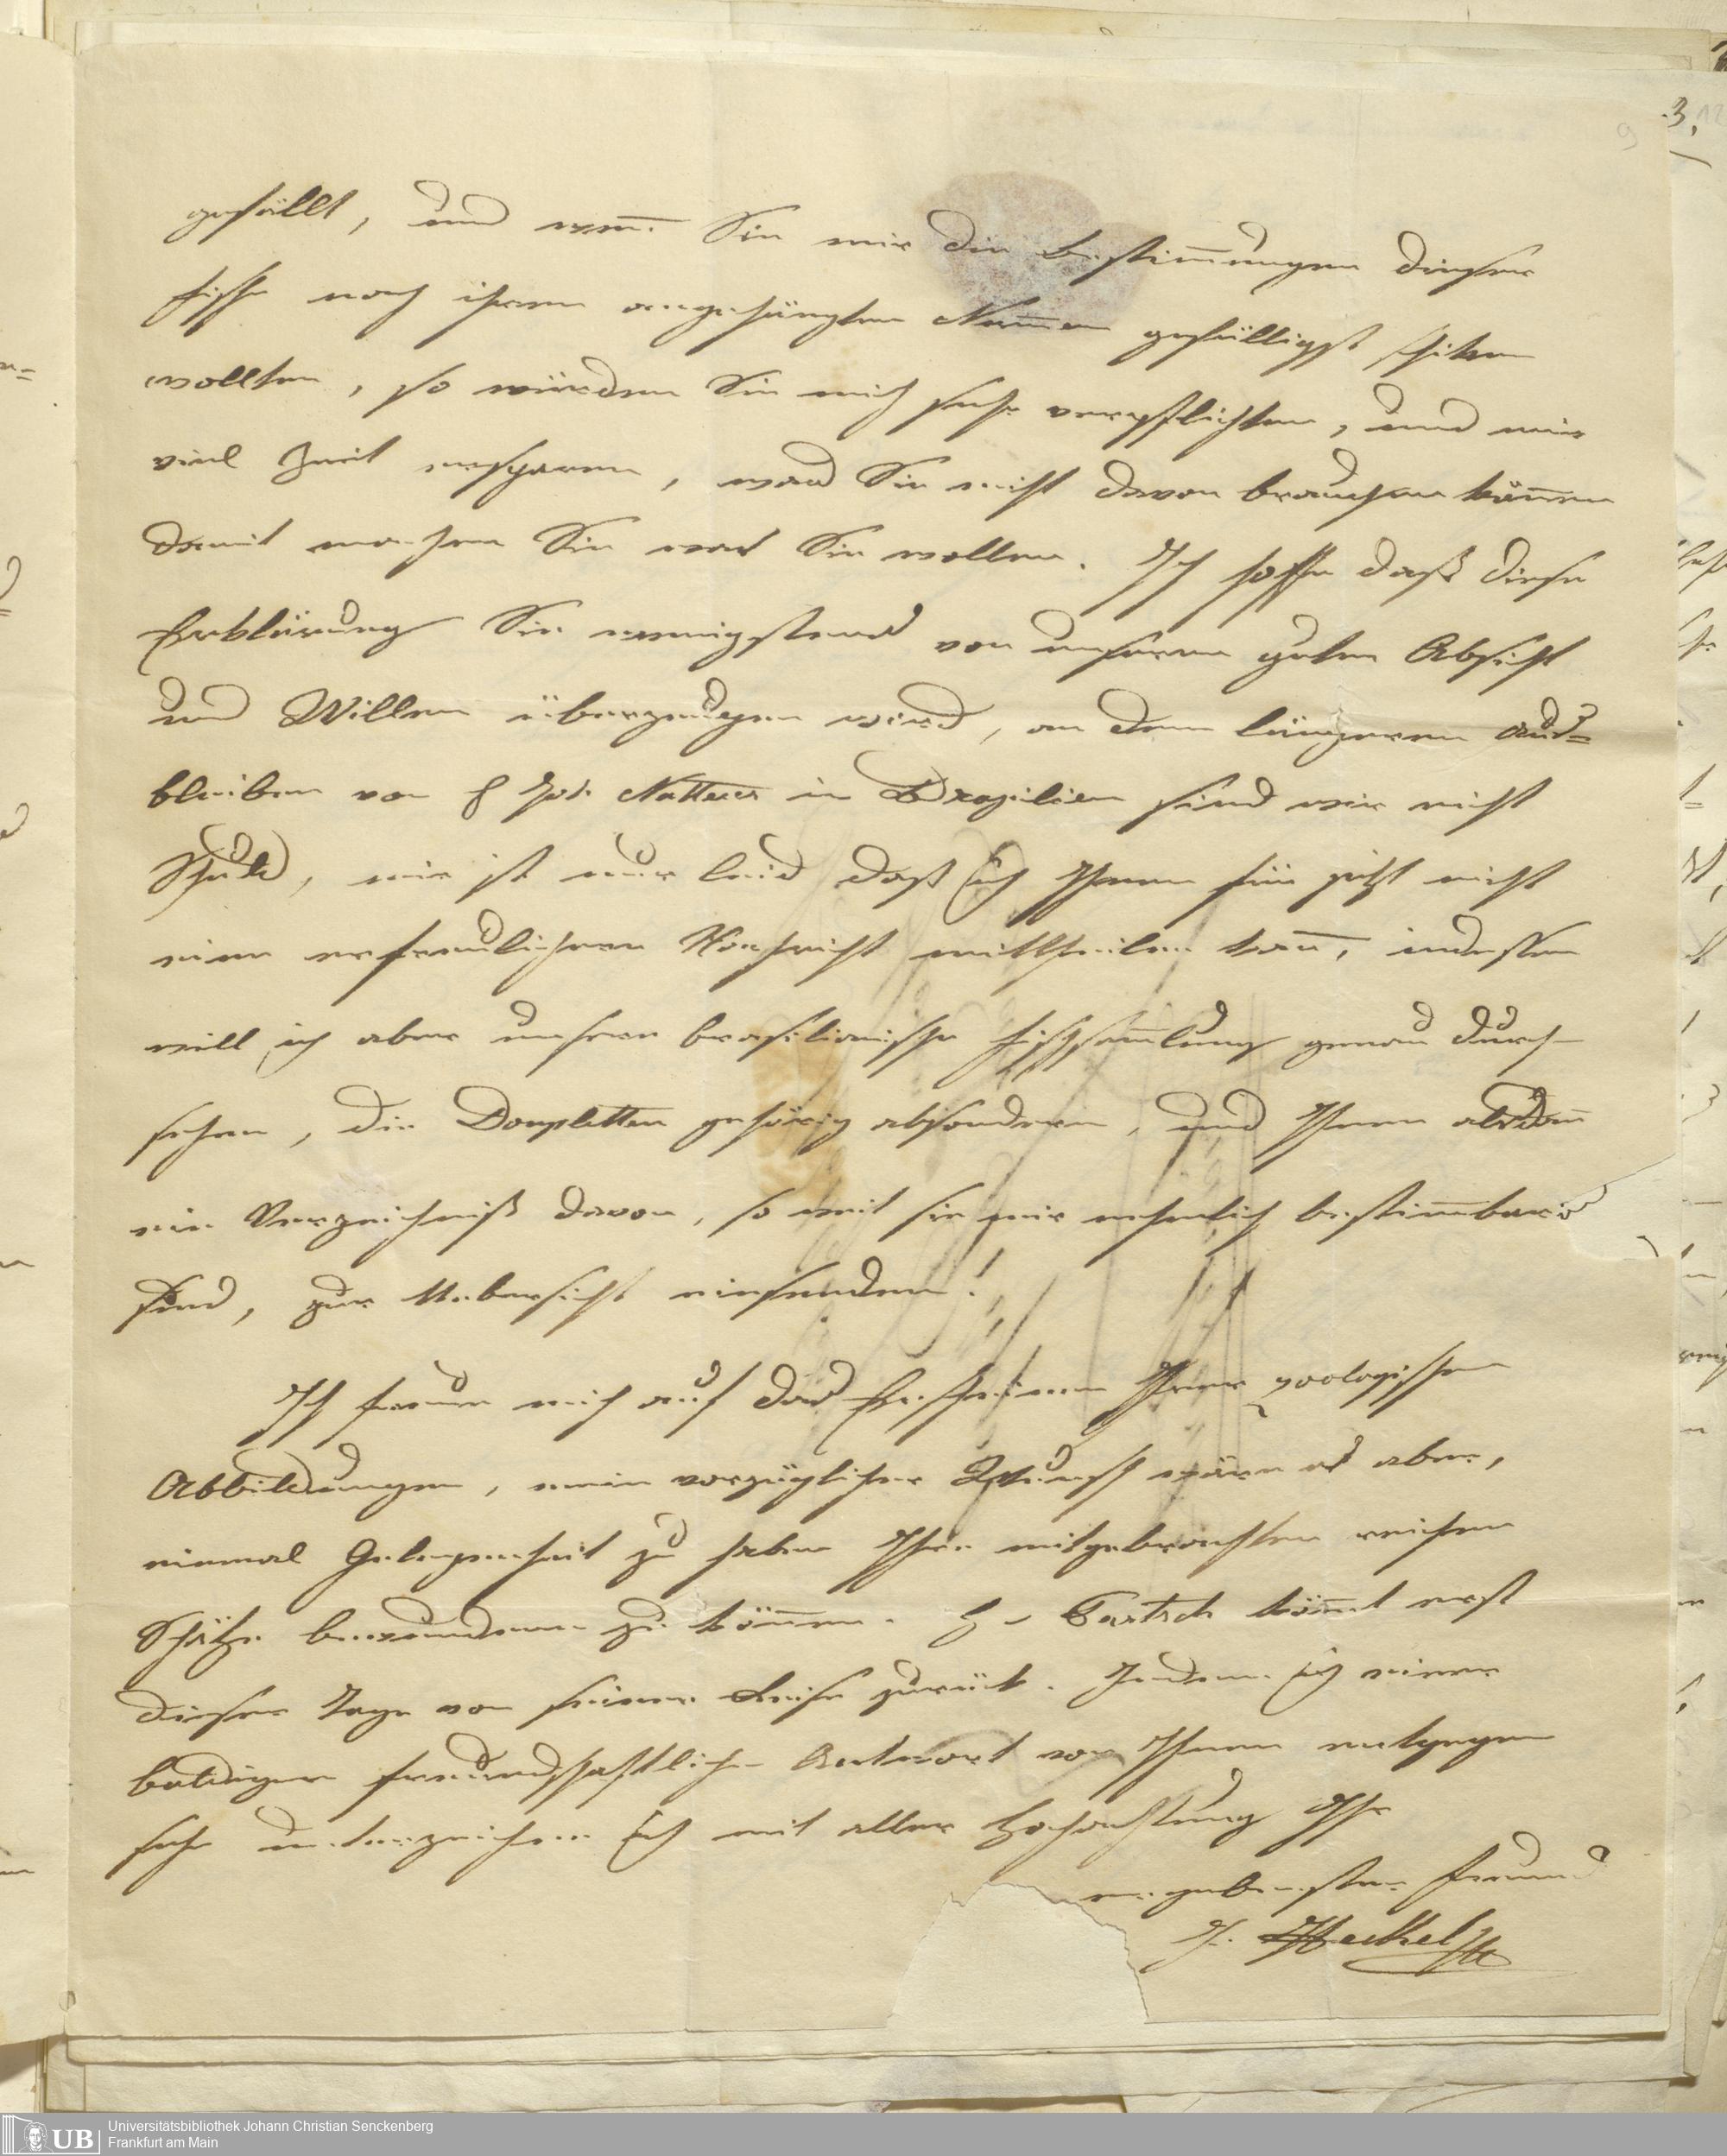 3.
9
12
gefällt, und wen̄ Sie mir die Bestim̄ungen dieser
Fische nach ihren angehängten Num̄ern gefälligst schiken
wollten, so würden Sie mich sehr verpflichten, und mir
viel Zeit ersparen, was Sie nicht davon brauchen kön̄en
damit machen Sie was Sie wollen. Ich hoffe daß diese
Erklärung Sie wenigstens von unserer guten Absicht
und Willen überzeugen wird, an dem längeren Aus=
bleiben von H Joh. Natterer in Brazilien sind wir nicht
Schuld, mir ist nur leid daß ich Ihnen für jetzt nicht
eine erfreulichere Nachricht mittheilen kan̄, indessen
will ich aber unsere brasilianische Fischsam̄lung genau durch
sehen, die Doupletten gehörig absondern, und Ihnen alsdan̄
ein Verzeichniß davon, so weit sie mir nehmlich bestim̄bar
sind, zur Uebersicht einsenden.
Ich freue mich auf das Erscheinen Ihrer zoologischen
Abbildungen, mein vorzüglicher Wunsch wäre es aber,
einmal Gelegenheit zu haben Ihre mitgebrachten reichen
Schätze bewundern zu kön̄en. H Partsch kom̄t erst
dieser Tage von seiner Reise zurück. Indem ich einer
baldigen freundschaftlichen Antwort von Ihnen entgegen
sehe unterzeichne ich mit aller Hochachtung Ihr
ergebenster Freund
J. Heckel
UB
Universitätsbibliothek Johann Christian Senckenberg
Frankfurt am Main